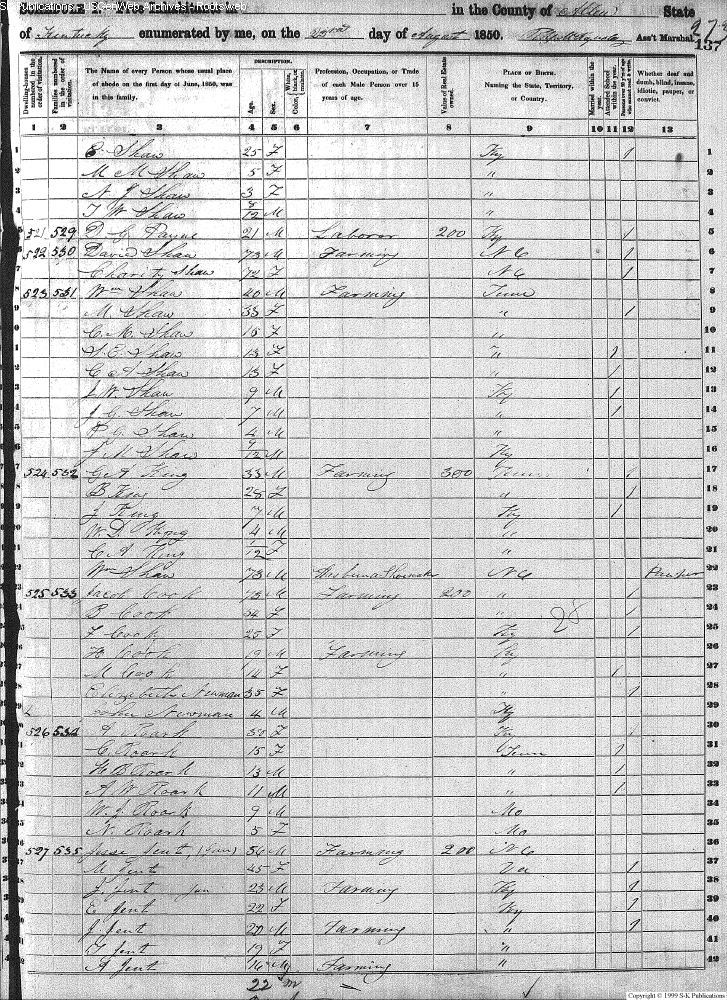 S-K Publications - USGenWeb Archives - Rootsweb
in the County of Allen State
of Kentucky enumerated by me, on the 23rd day of August 1850. Ass't Marshal.
137
DESCRIPTION.
Dwelling-houses numbered in the order of visitation.
Families numbered in the order of visitation.
The Name of every Person whose usual place of abode on the first day of June, 1850, was in this family.
Age.
Sex.
White, black, or mulatto.
Color,
Profession, Occupation, or Trade of each Male Person over 15 years of age.
Value of Real Estate owned.
PLACE OF BIRTH. Naming the State, Territory, or Country.
Married within the year.
Attended School within the year.
Whether deaf and dumb, blind, insane, idiotic, pauper, or convict.
1 2 3 4 5 6 7 8 9 10 11 12 13
1 E. Shaw 25 F Ky / 1
2 M M Shaw 5 F " 2
3 N J Shaw 3 F " 3
4 T W Shaw 8/12 M " 4
5 521 529 D G Payne 21 M Laborer 200 Ky / 5
6 522 530 David Shaw 73 M Farming N C / 6
7 Charity Shaw 72 F N C / 7
8 523 531 Wm Shaw 40 M Farming Tenn 8
9 M. Shaw 33 F " / 9
10 C. M. Shaw 16 F " 10
11 S. E. Shaw 13 F " 1 11
12 C A Shaw 13 F " 1 12
13 L W. Shaw 9 M Ky 1 13
14 J C Shaw 7 M " 1 14
15 Shaw 4 M " 15
16 F M Shaw 9/12 M Ky 16
17 524 532 G A King 33 M Farming 300 Tenn / 17
18 B King 28 F " / 18
19 J King 7 M Ky 1 19
20 W. D. King 4 M " 20
21 C A King 1/12 F " 21
22 Wm Shaw 73 M N C Pauper 22
23 525 533 Jacob Cook 73 M Farming 200 " / 23
24 B Cook 54 F " / 24
28
25 F Cook 25 F Ky / 25
26 H Cook 19 M Farming Ky 26
27 M Cook 14 F " 1 27
28 Elizabeth Newman 35 F " / 28
29 John Newman 4 M Ky 29
30 526 534 Roark 38 F Ky / 30
31 C. Roark 15 F Tenn 1 31
32 H B Roark 13 M " 1 32
33 A W Roark 11 M " 1 33
34 W. J. Roark 9 M Mo 34
35 N. Roark 5 F Mo 35
36 527 535 Jesse Jent, 56 M Farming 200 N C 36
37 M Jent 45 F Va / 37
38 J. Jent Jun 23 M Farming Ky 1 38
39 E Jent 22 F Ky 1 39
40 J Jent 20 M Farming " 1 40
41 Jent 19 F " 41
42 A Jent 16 M Farming " 42
22 m
Copyright © 1999 S-K Publications